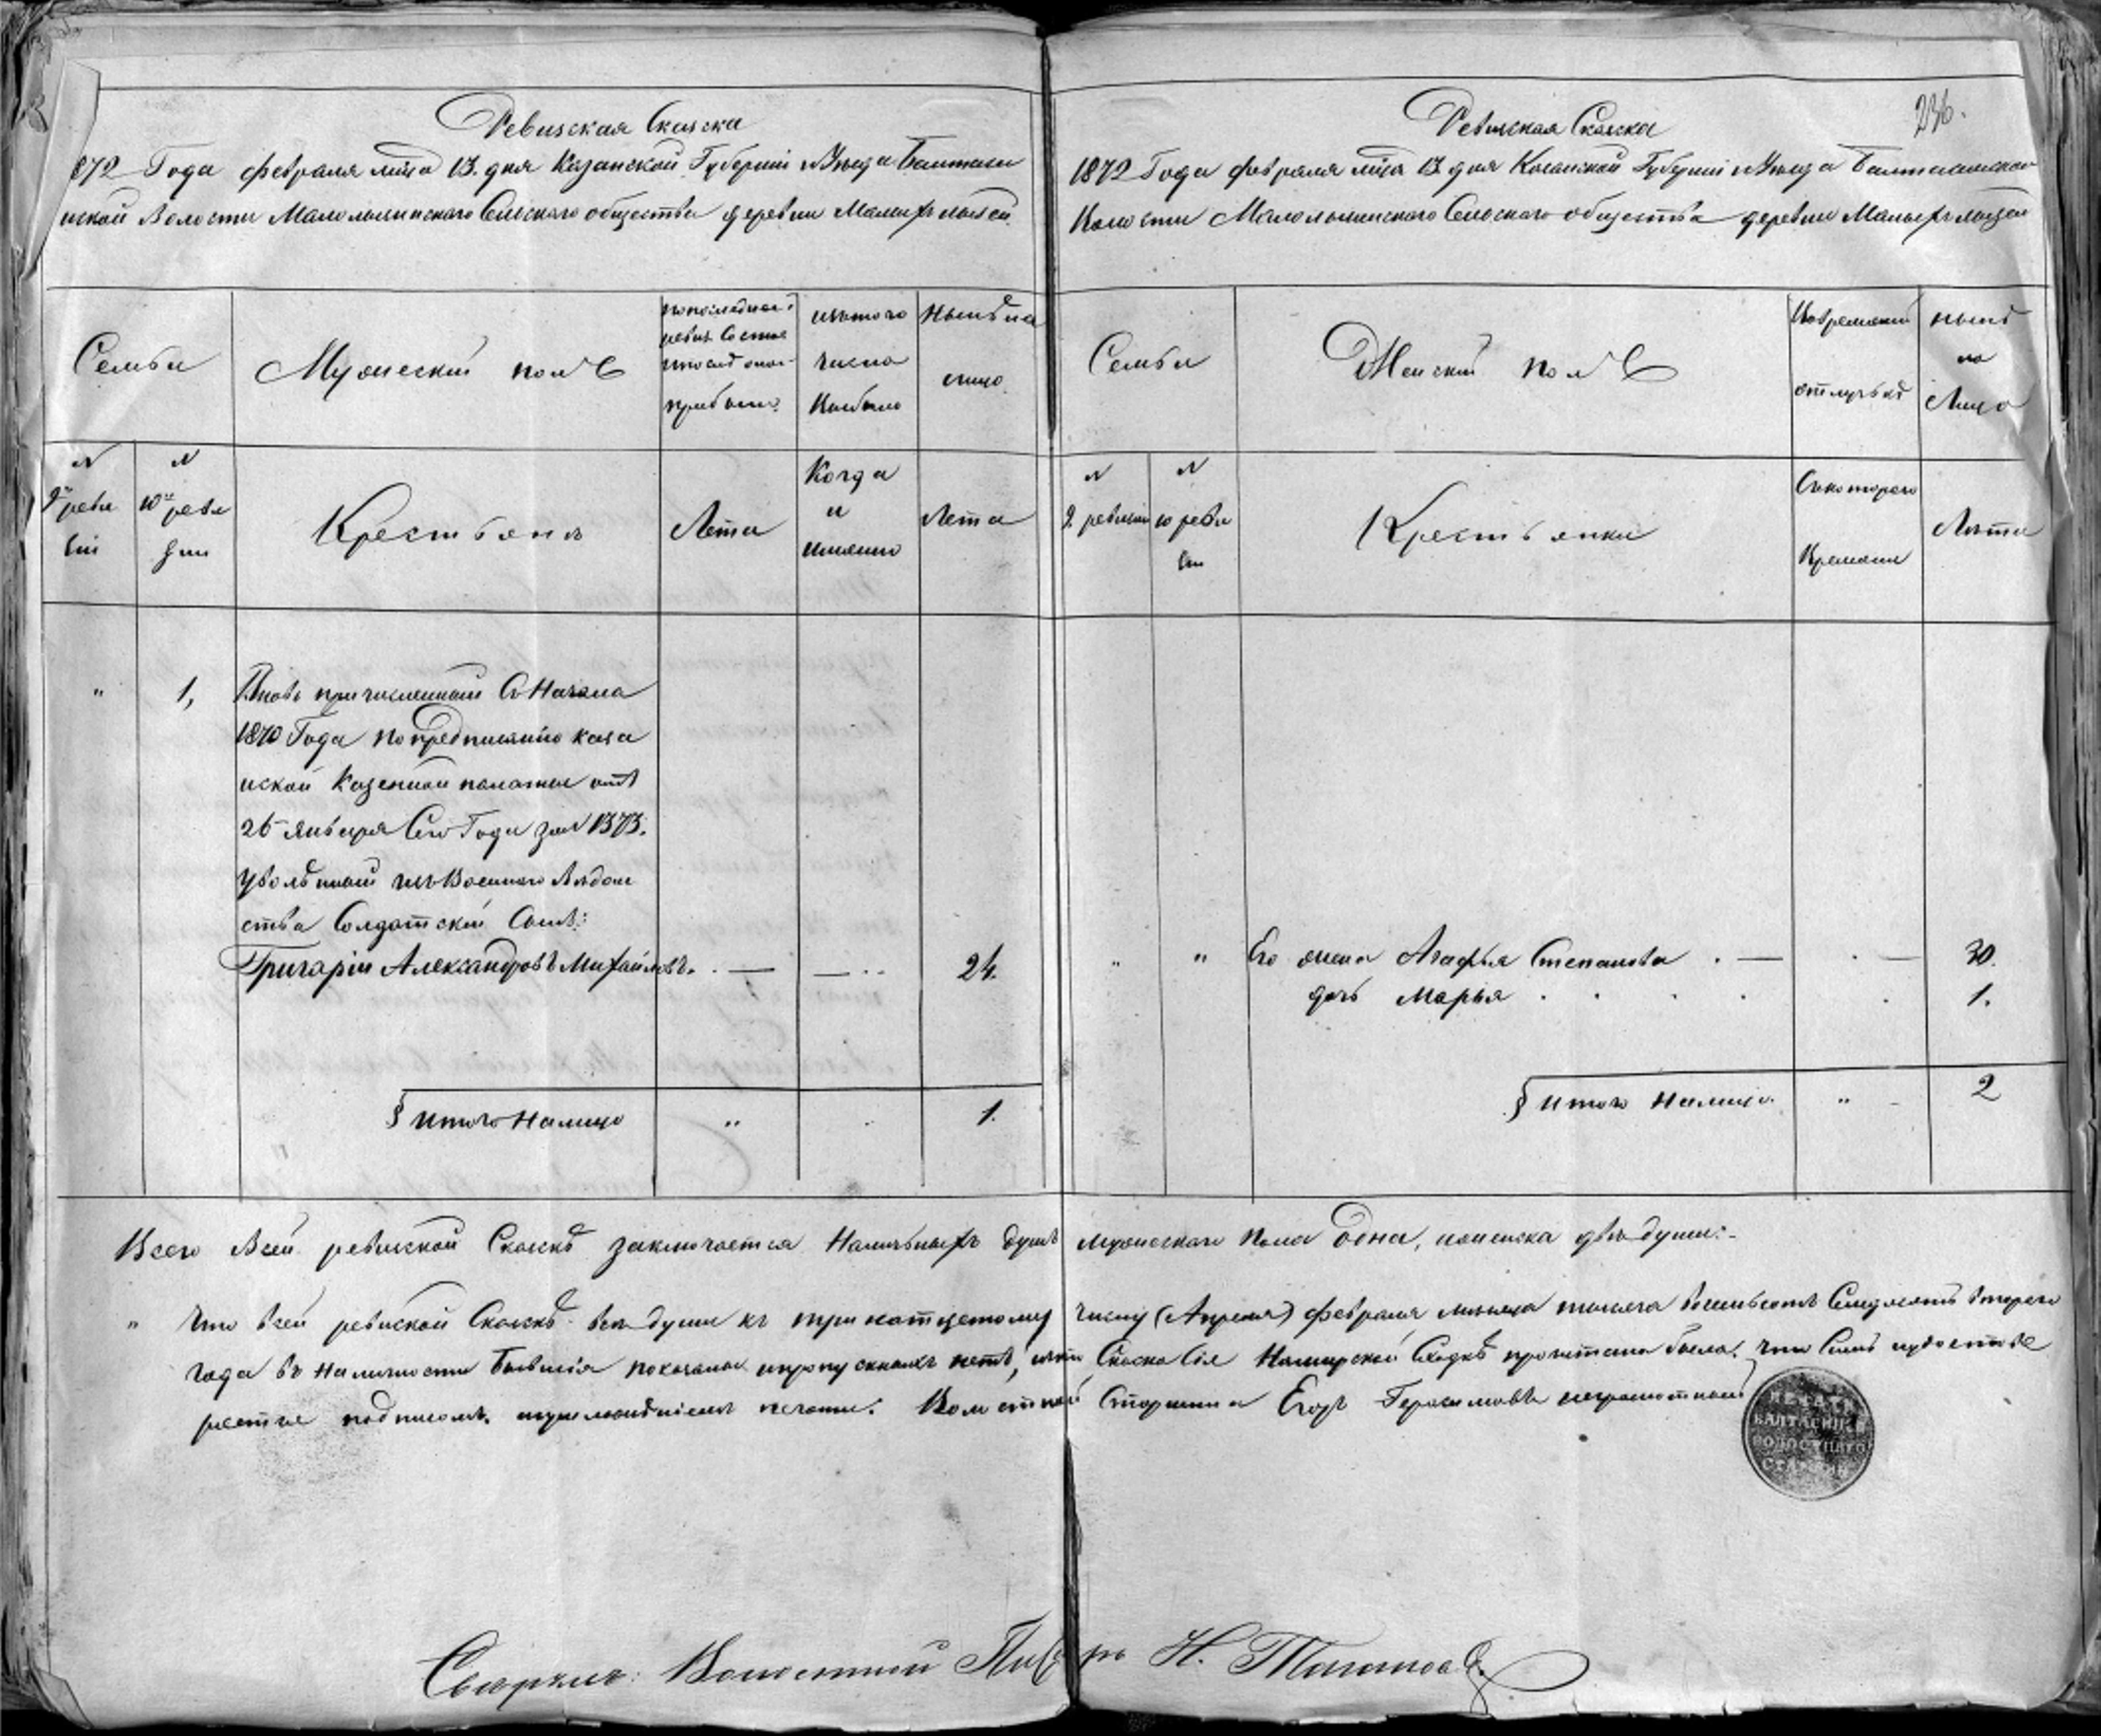 Ревизская Сказка
1872 Года февраля мѣца 13. дня Казанской Губерніи и Уезда Балтаси
нской Волости Маломинского Сельского общества деревни Малыхъ
Семьи
Мужеский полъ
по последней
ревиз. Состоя
прибыло.
изътого
числа
Выбыло
Ныне на
лицо.
N
9й реви
зіи
N
10й реви
зіи
Крестьяня
Лета
Когда
и
имянно
Лета
" 1, Вновь причисленный Съ Начала
1870 Года по предписанію каза
нской Казенной палаты отъ
26 января Сего Года за N 1373.
Уволѣнный изъ Военного Вѣдом
ства Солдатский Сынъ:
Григарій Александровъ Михайловъ. 24.
§ Итого Налицо " 1.
236.
Ревизская Сказка
1872 Года февраля мѣца 13 дня Казанской Губерніи и Уезда Балтасинской
Волости Маломинского Сельского общества деревни Малыхъ
Семьи
Женский полъ
Во временной
отлучкѣ
ныне
на
Лицо
N
9 ревизіи
N
10 реви
зіи
Крестьянки
Съкоторого
Времени
Лѣта
" " Его жена Агафья Степанова 30.
дочь Марья 1.
§ Итого Налицо " 2
Всего Всей ревизской Сказкѣ заключается Наличныхъ душъ мужескаго пола Одна, женска двѣ души:
" Что всей ревизской Сказкѣ все души къ тринатцетому числу (Апреля) февраля месяца тысяча восемьсотъ Семдесятъ второго
года въ наличности бывшія показаны и пропускныхъ нетъ, и что Сказка Сія Намирской Сходкѣ прочитана была. что Симъ
подписомъ. и приложѣніемъ печати. Волостной Старшина Егоръ Герасимовъ неграмотный
ПЕЧАТЬ
БАЛТАСИНСК
ВОЛОСТНАГО
СТАРШИНЫ
Волостной Писарь Н.